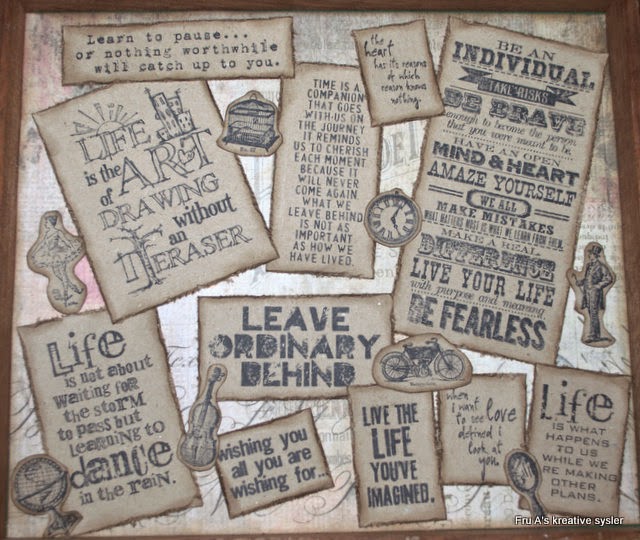 Learn to pause...
or nothing worthwhile
will catch up to you.
LIFE
is the ART
of
DRAWING
without
an
ERASER
TIME IS A
COMPANION
THAT GOES
WITH US ON
THE JOURNEY
IT REMINDS
US TO CHERISH
EACH MOMENT
BECAUSE IT
WILL NEVER
COME AGAIN
WHAT WE
LEAVE BEHIND
IS NOT AS
IMPORTANT
AS HOW WE
HAVE LIVED.
the
heart
has its reasons
of which
reason knows
nothing.
BE AN
INDIVIDUAL
TAKE RISKS
BE BRAVE
enough to become the person
that you were meant to be
HAVE AN OPEN
MIND & HEART
AMAZE YOURSELF
WE ALL
MAKE MISTAKES
WHAT MATTERS MOST IS WHAT WE LEARN FROM THEM.
MAKE A REAL
DIFFERENCE
LIVE YOUR LIFE
with purpose and meaning
BE FEARLESS
Life
is not about
waiting for
the storm
to pass but
learning to
dance
in the rain.
LEAVE
ORDINARY
BEHIND
wishing you
all you are
wishing for...
LIVE THE
LIFE
YOU'VE
IMAGINED.
when
i want
to see love
defined i
look at
you.
Life
IS WHAT
HAPPENS
TO US
WHILE WE
RE MAKING
OTHER
PLANS.
Fru A's kreative sysler